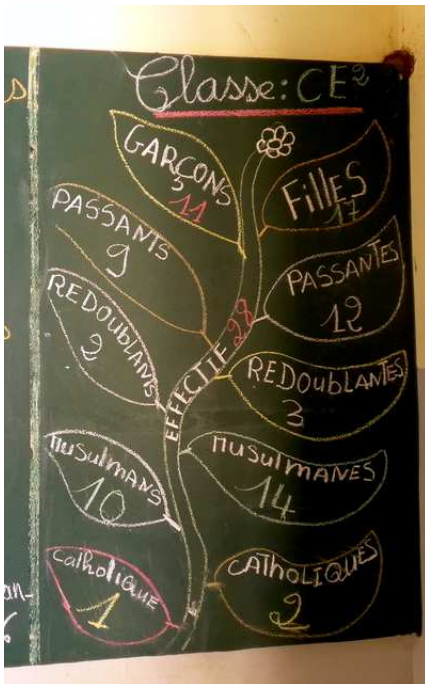 Classe: CE2
GARÇONS
11
Filles
17
PASSANTS
9
PASSANTES
12
REDOUBLANTS
2
REDOUBLANTES
3
EFFECTIF 28
MUSULMANS
10
MUSULMANES
14
Catholique
1
CATHOLIQUES
2
s
an-